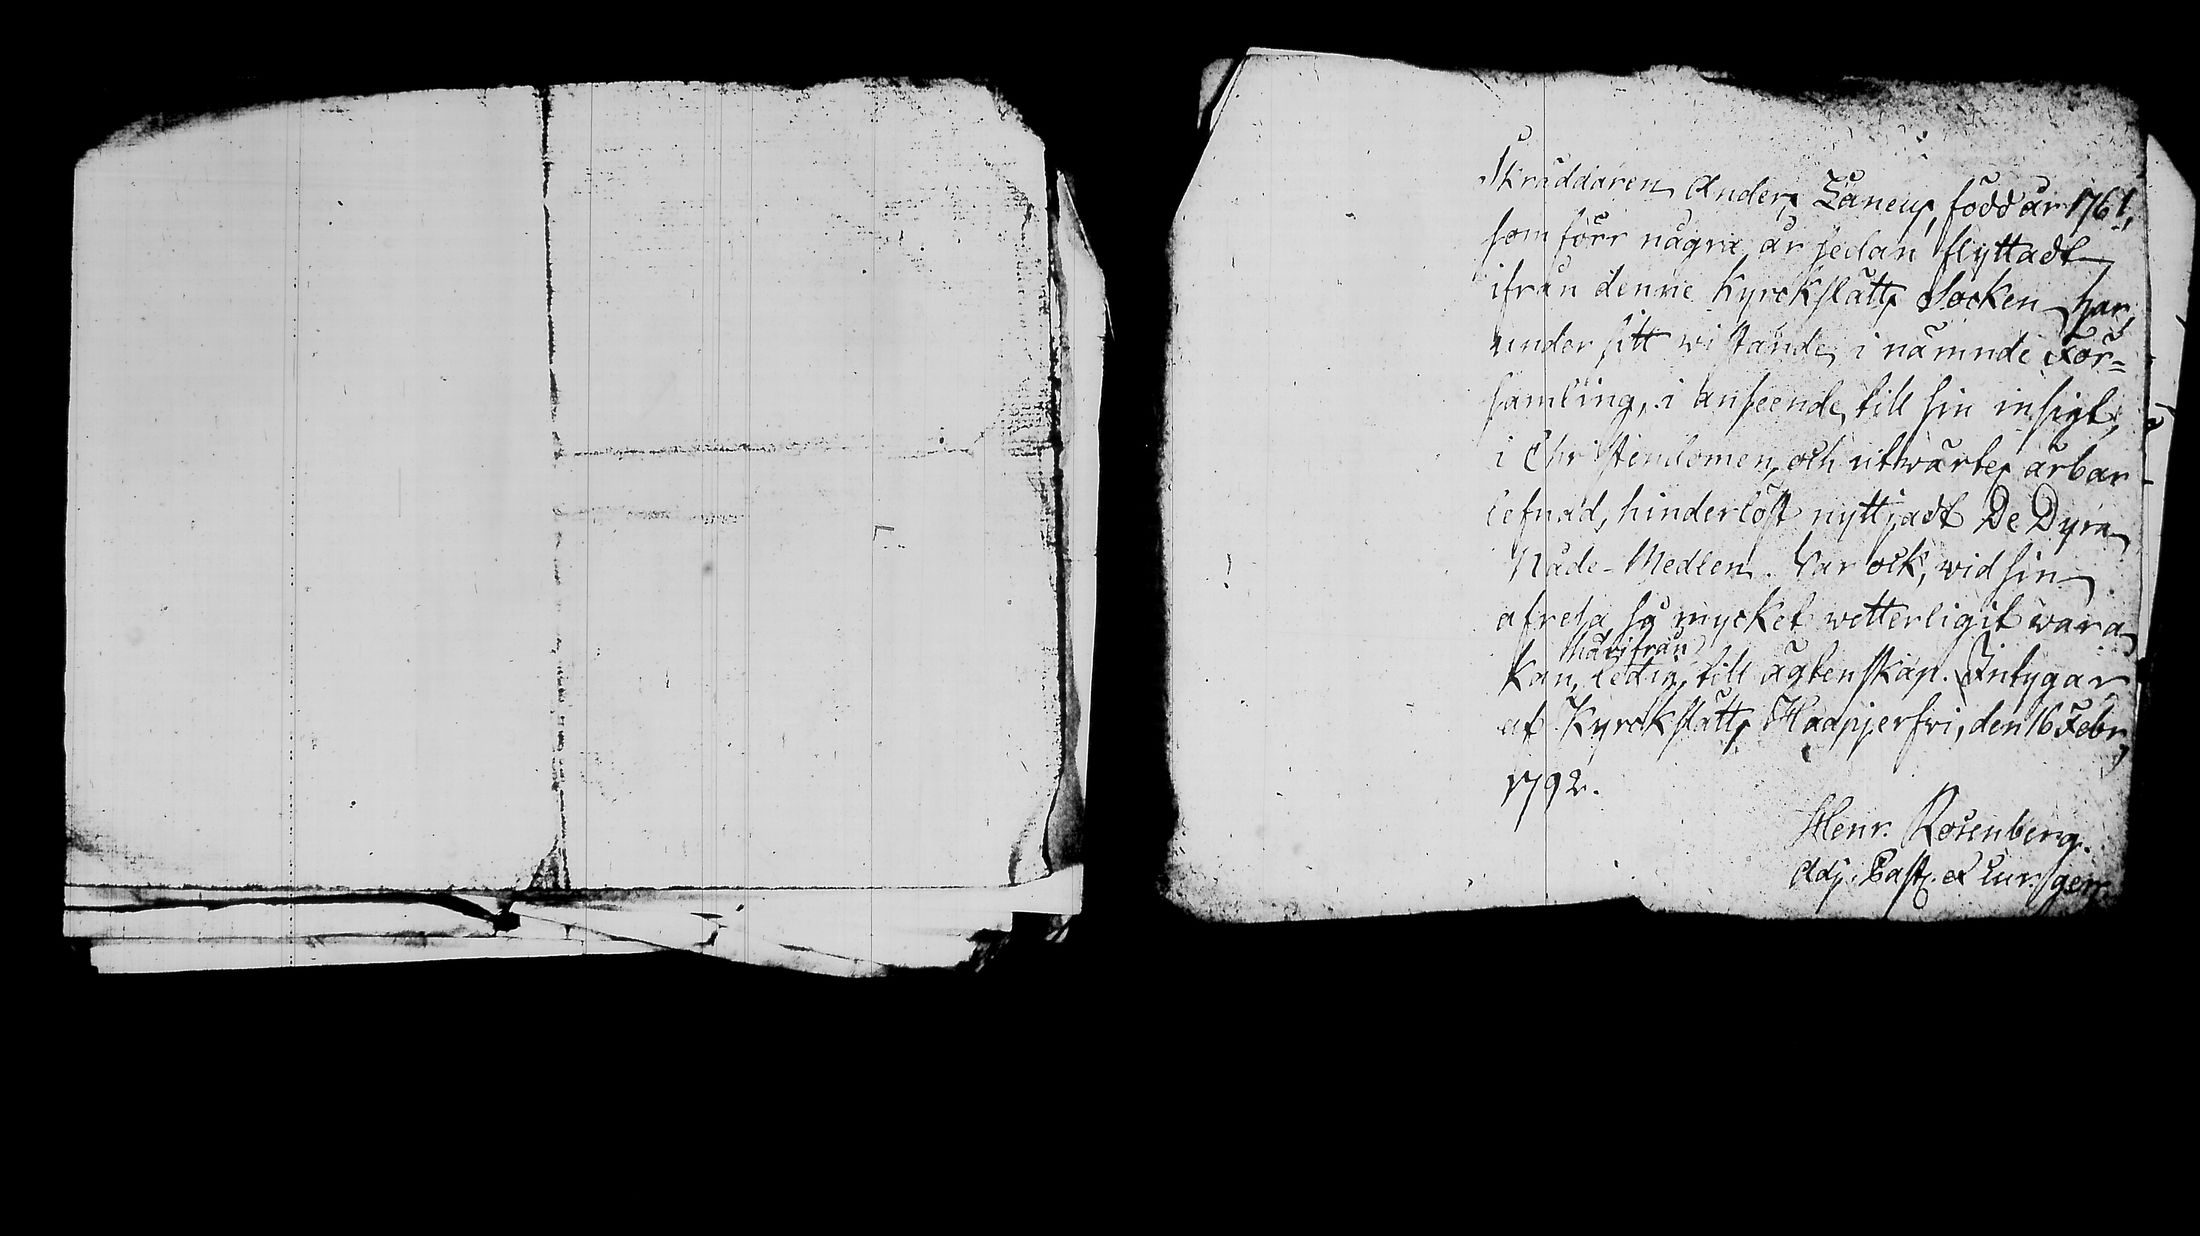 Skräddaren Anders Zaneus, född år 1761,
som förr några år sedan flyttadt
ifrån denne Kyrckslätts Socken har
under sitt wistande i nämnde För=
samling, i anseende till sin insigt
i Christendomen, och utwärtes ärbar
lefnad, hinderlöst nyttjadt De Dyra
Nåde-Medlen. Var ock, wid sin
afresa så mycket wetterligit wara
härifrån
kan, ledig till ägtenskap. Intygar
af Kyrckslätts Haapjerfwi, den 16 Febr
1792.
Henr. Rosenberg.
Adj. Past. et Cur. ger.